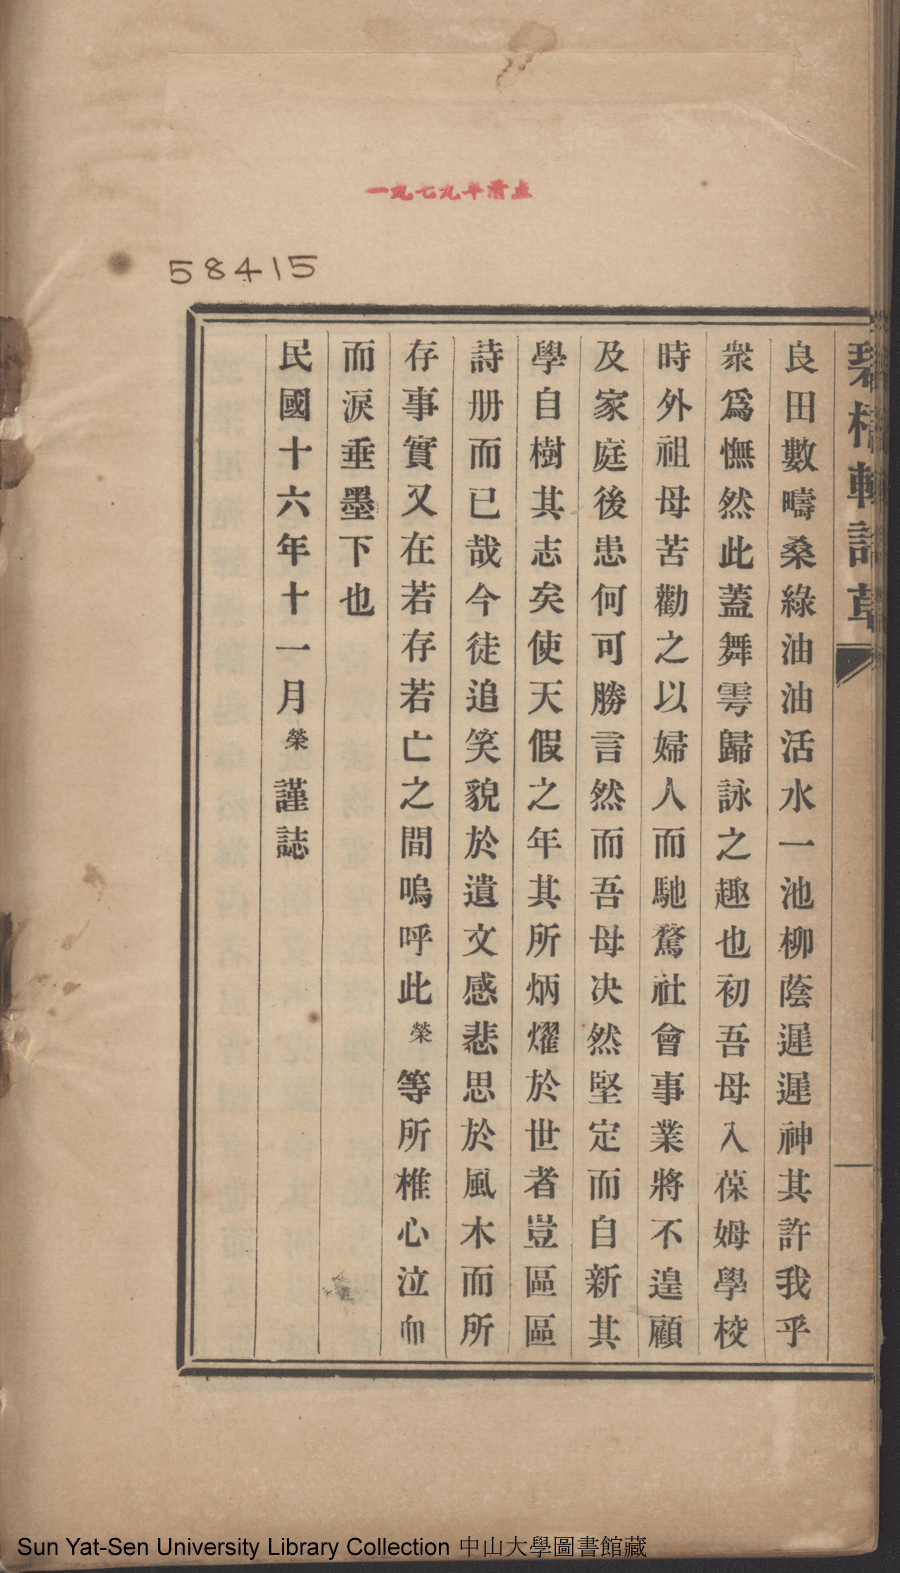 一九七九年清点
58415
良田數疇桑綠油油活水一池柳蔭遲遲神其許我乎
衆爲憮然此蓋舞雩歸詠之趣也初吾母入葆姆學校
時外祖母苦勸之以婦人而馳騖社會事業將不遑顧
及家庭後患何可勝言然而吾母决然堅定而自新其
學自樹其志矣使天假之年其所炳燿於世者豈區區
詩册而已哉今徒追笑貌於遺文感悲思於風木而所
存事實又在若存若亡之間嗚呼此榮等所椎心泣血
而淚垂墨下也
民國十六年十一月榮謹誌
Sun Yat-Sen University Library Collection 中山大學圖書館藏